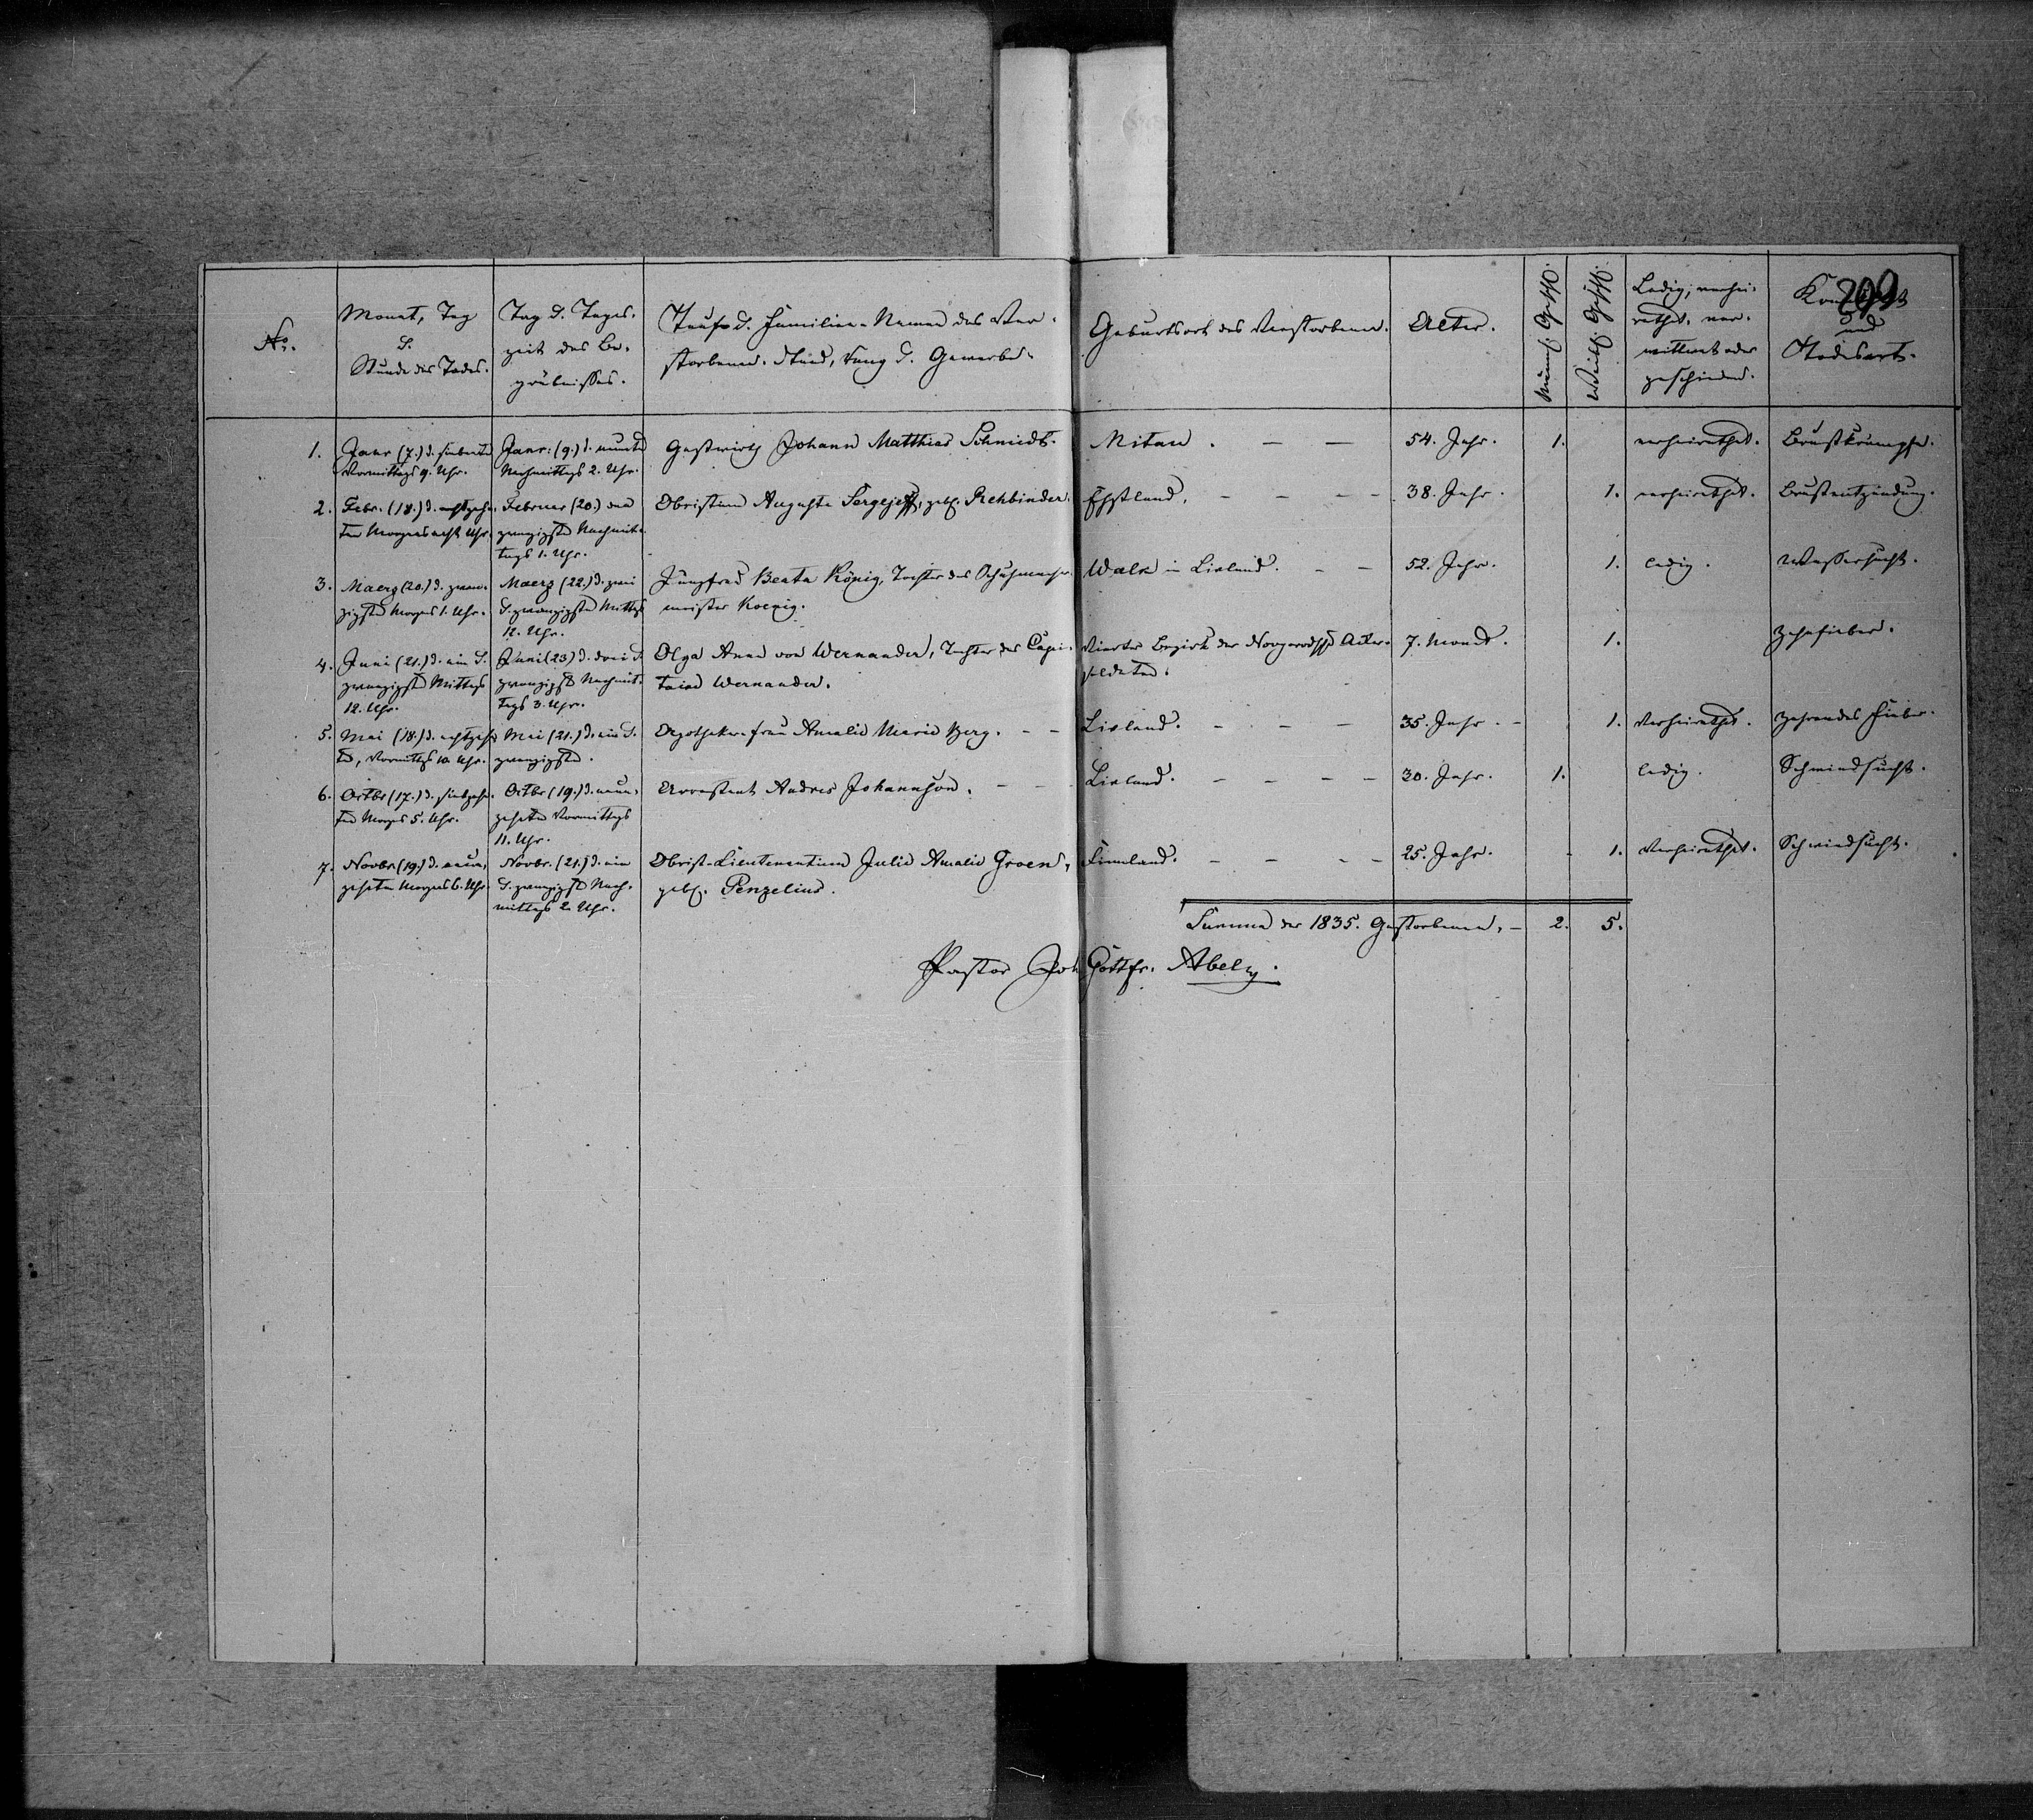 209
No.
Monat, Tag
u.
Stunde des Todes.
Tag u. Tages-
zeit des Be-
gräbnisses.
Tauf u. Familien-Namen des Ver-
storbenen. Stand, Rang u. Gewerbe.
Geburtsort des Verstorbenen.
Alter.
Männl. Geschl.
Weibl. Geschl.
Ledig, verhei-
rathet, ver-
wittwet oder
geschieden.
Krankheit
und
Todesart.
1.
Janr (7.) d. siebente
Vormittags 9. Uhr.
Janr: (9.) d. neunte
Nachmittags 2. Uhr.
Gastwirth Johann Matthias Schmiedt.
Mitau. — —
54. Jahr.
1.
verheirathet.
Brustkrämpfe.
2.
Febr. (18.) d. achtzehn-
ten Morgens acht Uhr.
Februar (20.) den
zwanzigsten Nachmit-
tags 1. Uhr.
Obristinn Auguste Sergejeff, geb. Rehbinder.
Ehstland. — — — —
38. Jahr.
1.
verheirathet.
Brustentzündung.
3.
Maerz (20.) d. zwan-
zigsten Morgens 1. Uhr.
Maerz (22.) d. zwei
u. zwanzigsten Mittags
12. Uhr.
Jungfrau Beata König, Tochter des Schuhmacher-
meister Koenig.
Walk in Livland. — —
52. Jahr.
1.
ledig.
Wassersucht.
4.
Juni (21.) d. ein u.
zwanzigste Mittags
12. Uhr.
Juni (23) d. drei u.
zwanzigste Nachmit-
tags 3. Uhr.
Olga Anna von Wernander, Tochter des Capi-
tains Wernander.
Vierter Bezirk der Novgorodschen Acker-
soldaten.
7. Monat.
1.
Zahnfieber.
5.
Mai (18.) d. achtzehn
ten, Vormittags 10. Uhr.
Mai (21.) d. ein u.
zwanzigsten.
Apotheker-frau Amalie Marie Berg. — —
Livland. — — —
35. Jahr. —
1.
Verheirathet.
Zehrendes Fieber.
6.
Octbr (17.) d. siebzehn-
ten Morgens 5. Uhr.
Octbr (19.) d. neun-
zehnten Vormittags
11. Uhr.
Arrestant Andres Johannson. — —
Livland. — — — —
30. Jahr.
1.
ledig.
Schwindsucht.
7.
Novbr (19.) d. neun-
zehnten Morgens 6. Uhr.
Novbr. (21.) d. ein
u. zwanzigste Nach-
mittags 2. Uhr.
Obrist-Lieutenantinn Julie Amalie Groen,
geb. Penzelius.
Finnland. — — — —
25. Jahr.
1.
Verheirathet.
Schwindsucht.
Summa der 1835. Gestorbenen. — 2. 5.
Pastor Joh Gottfr. Abel